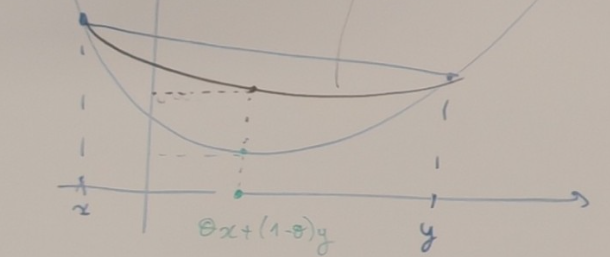 x
θx+(1-θ)y
y